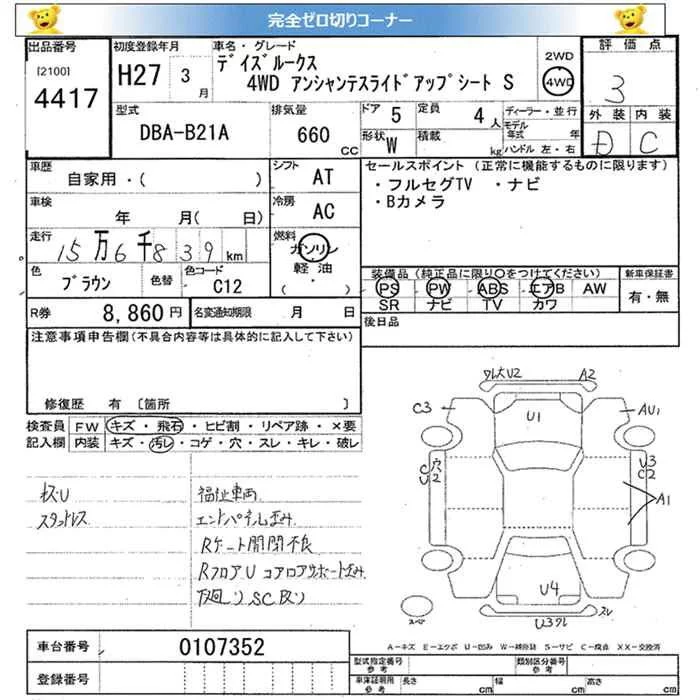 完全ゼロ切りコーナー
出品番号
[2100]
4417
初度登録年月
H27 3月
車名・グレード
デイズルークス
4WD アンシャンテスライドアップシート S
2WD
4WD
評価点
3
外装 内装
D C
型式
DBA-B21A
排気量
660 CC
ドア 5
定員 4人
形状 W
積載 kg
ディーラー・並行
モデル年式 年
ハンドル 左・右
車歴
自家用・( )
シフト AT
車検
年 月( 日)
冷房 AC
走行
15万6千839 km
燃料
ガソリン
軽油
( ・ )
色
ブラウン
色替
色コード
C12
R券 8,860円
名変通知期限 月 日
セールスポイント (正常に機能するものに限ります)
・フルセグTV ・ナビ
・Bカメラ
装備品(純正品に限り○をつけてください)
PS PW ABS エアB AW
SR ナビ TV カワ
新車保証書
有・無
後日品
注意事項申告欄(不具合内容等は具体的に記入して下さい)
修復歴 有 [箇所 ]
検査員記入欄
FW キズ・飛石・ヒビ割・リペア跡・×要
内装 キズ・汚レ・コゲ・穴・スレ・キレ・破レ
スタッドレス
福祉車両
エンドパネル歪み
Rゲート開閉不良
RフロアU コアロアサポート歪み
下廻りSC反り
U2 A2
C3 U1 AU1
穴
C
U2
U3
C2
A1
U4
スペア
U3 スレ
A-キズ E-エクボ U-凹み W-補修跡 S-サビ C-腐食 XX-交換済
車台番号 0107352
登録番号
型式指定番号 参考
類別区分番号 参考
車庫証明用 参考
長さ cm 幅 cm 高さ cm